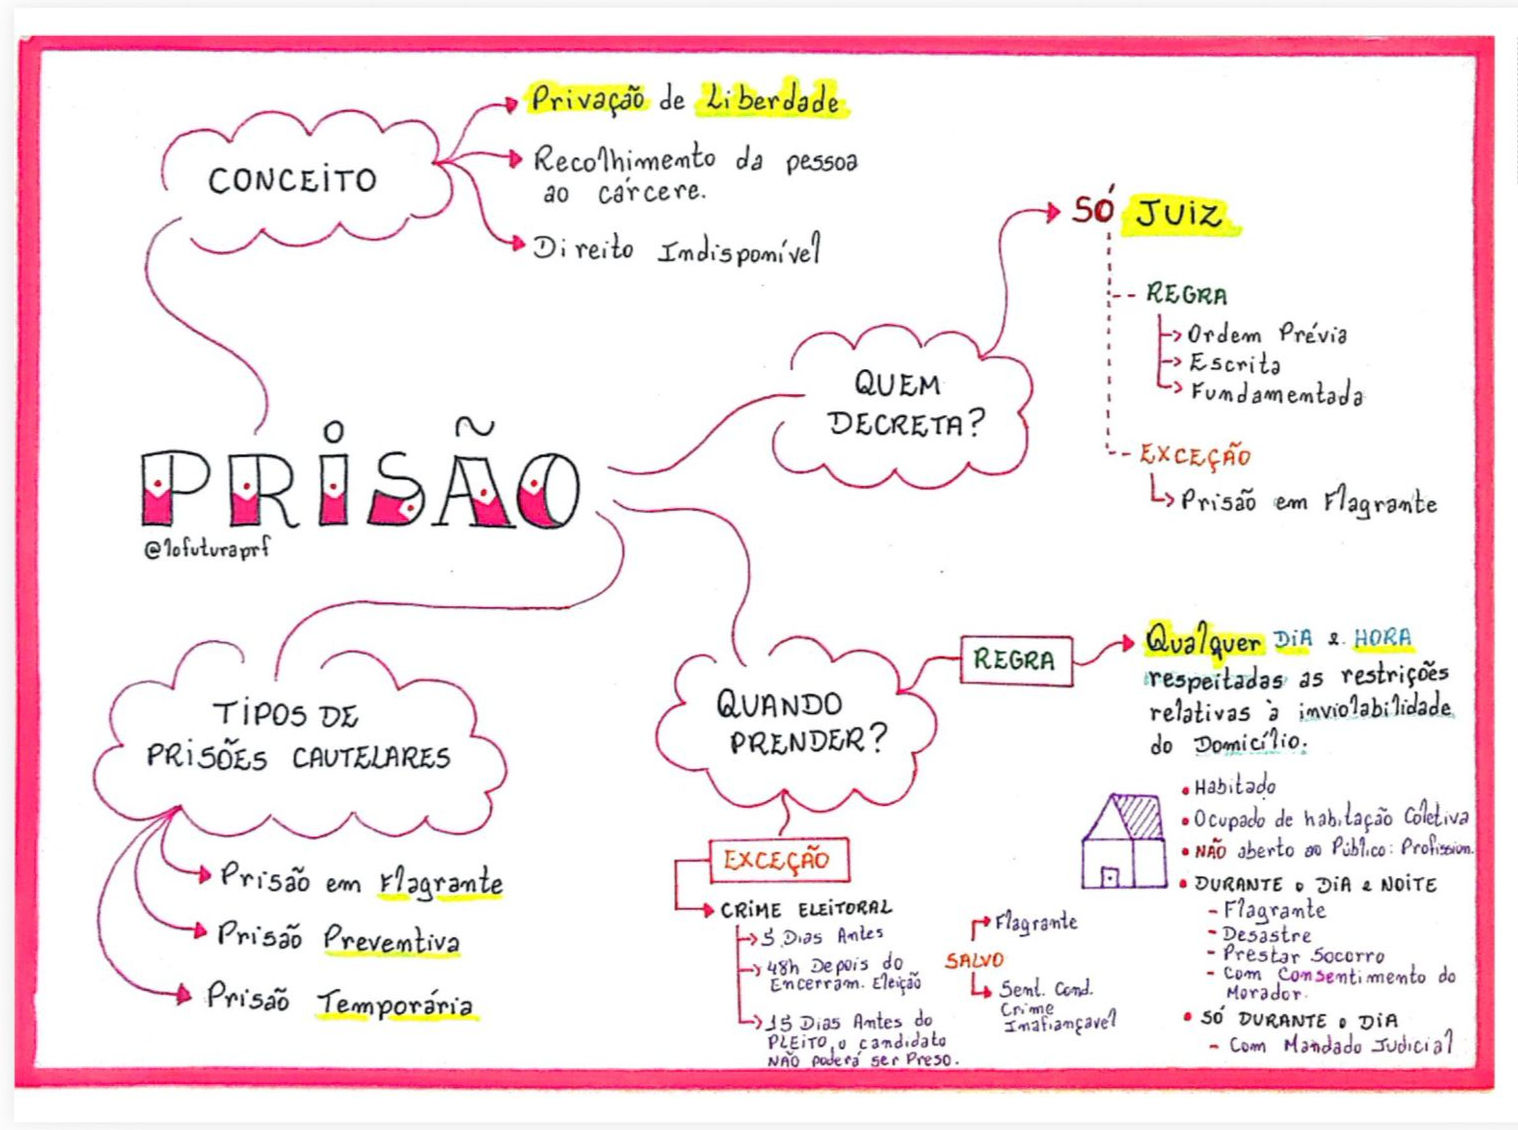 CONCEITO
Privação de Liberdade
Recolhimento da pessoa
ao cárcere.
Direito Indisponível
PRISÃO
@1ofuturaprf
QUEM
DECRETA?
SÓ JUIZ
REGRA
Ordem Prévia
Escrita
Fundamentada
EXCEÇÃO
Prisão em Flagrante
TIPOS DE
PRISÕES CAUTELARES
Prisão em Flagrante
Prisão Preventiva
Prisão Temporária
QUANDO
PRENDER?
REGRA
Qualquer DIA e HORA
respeitadas as restrições
relativas à inviolabilidade
do Domicílio.
• Habitado
• Ocupado de habitação Coletiva
• NÃO aberto ao Público: Profission.
• DURANTE o DIA e NOITE
- Flagrante
- Desastre
- Prestar Socorro
- Com Consentimento do
Morador.
• SÓ DURANTE o DIA
- Com Mandado Judicial
EXCEÇÃO
CRIME ELEITORAL
5 Dias Antes
48h Depois do
Encerram. Eleição
15 Dias Antes do
PLEITO, o candidato
NÃO poderá ser Preso.
SALVO
Flagrante
Sent. Cond.
Crime
Inafiançavel